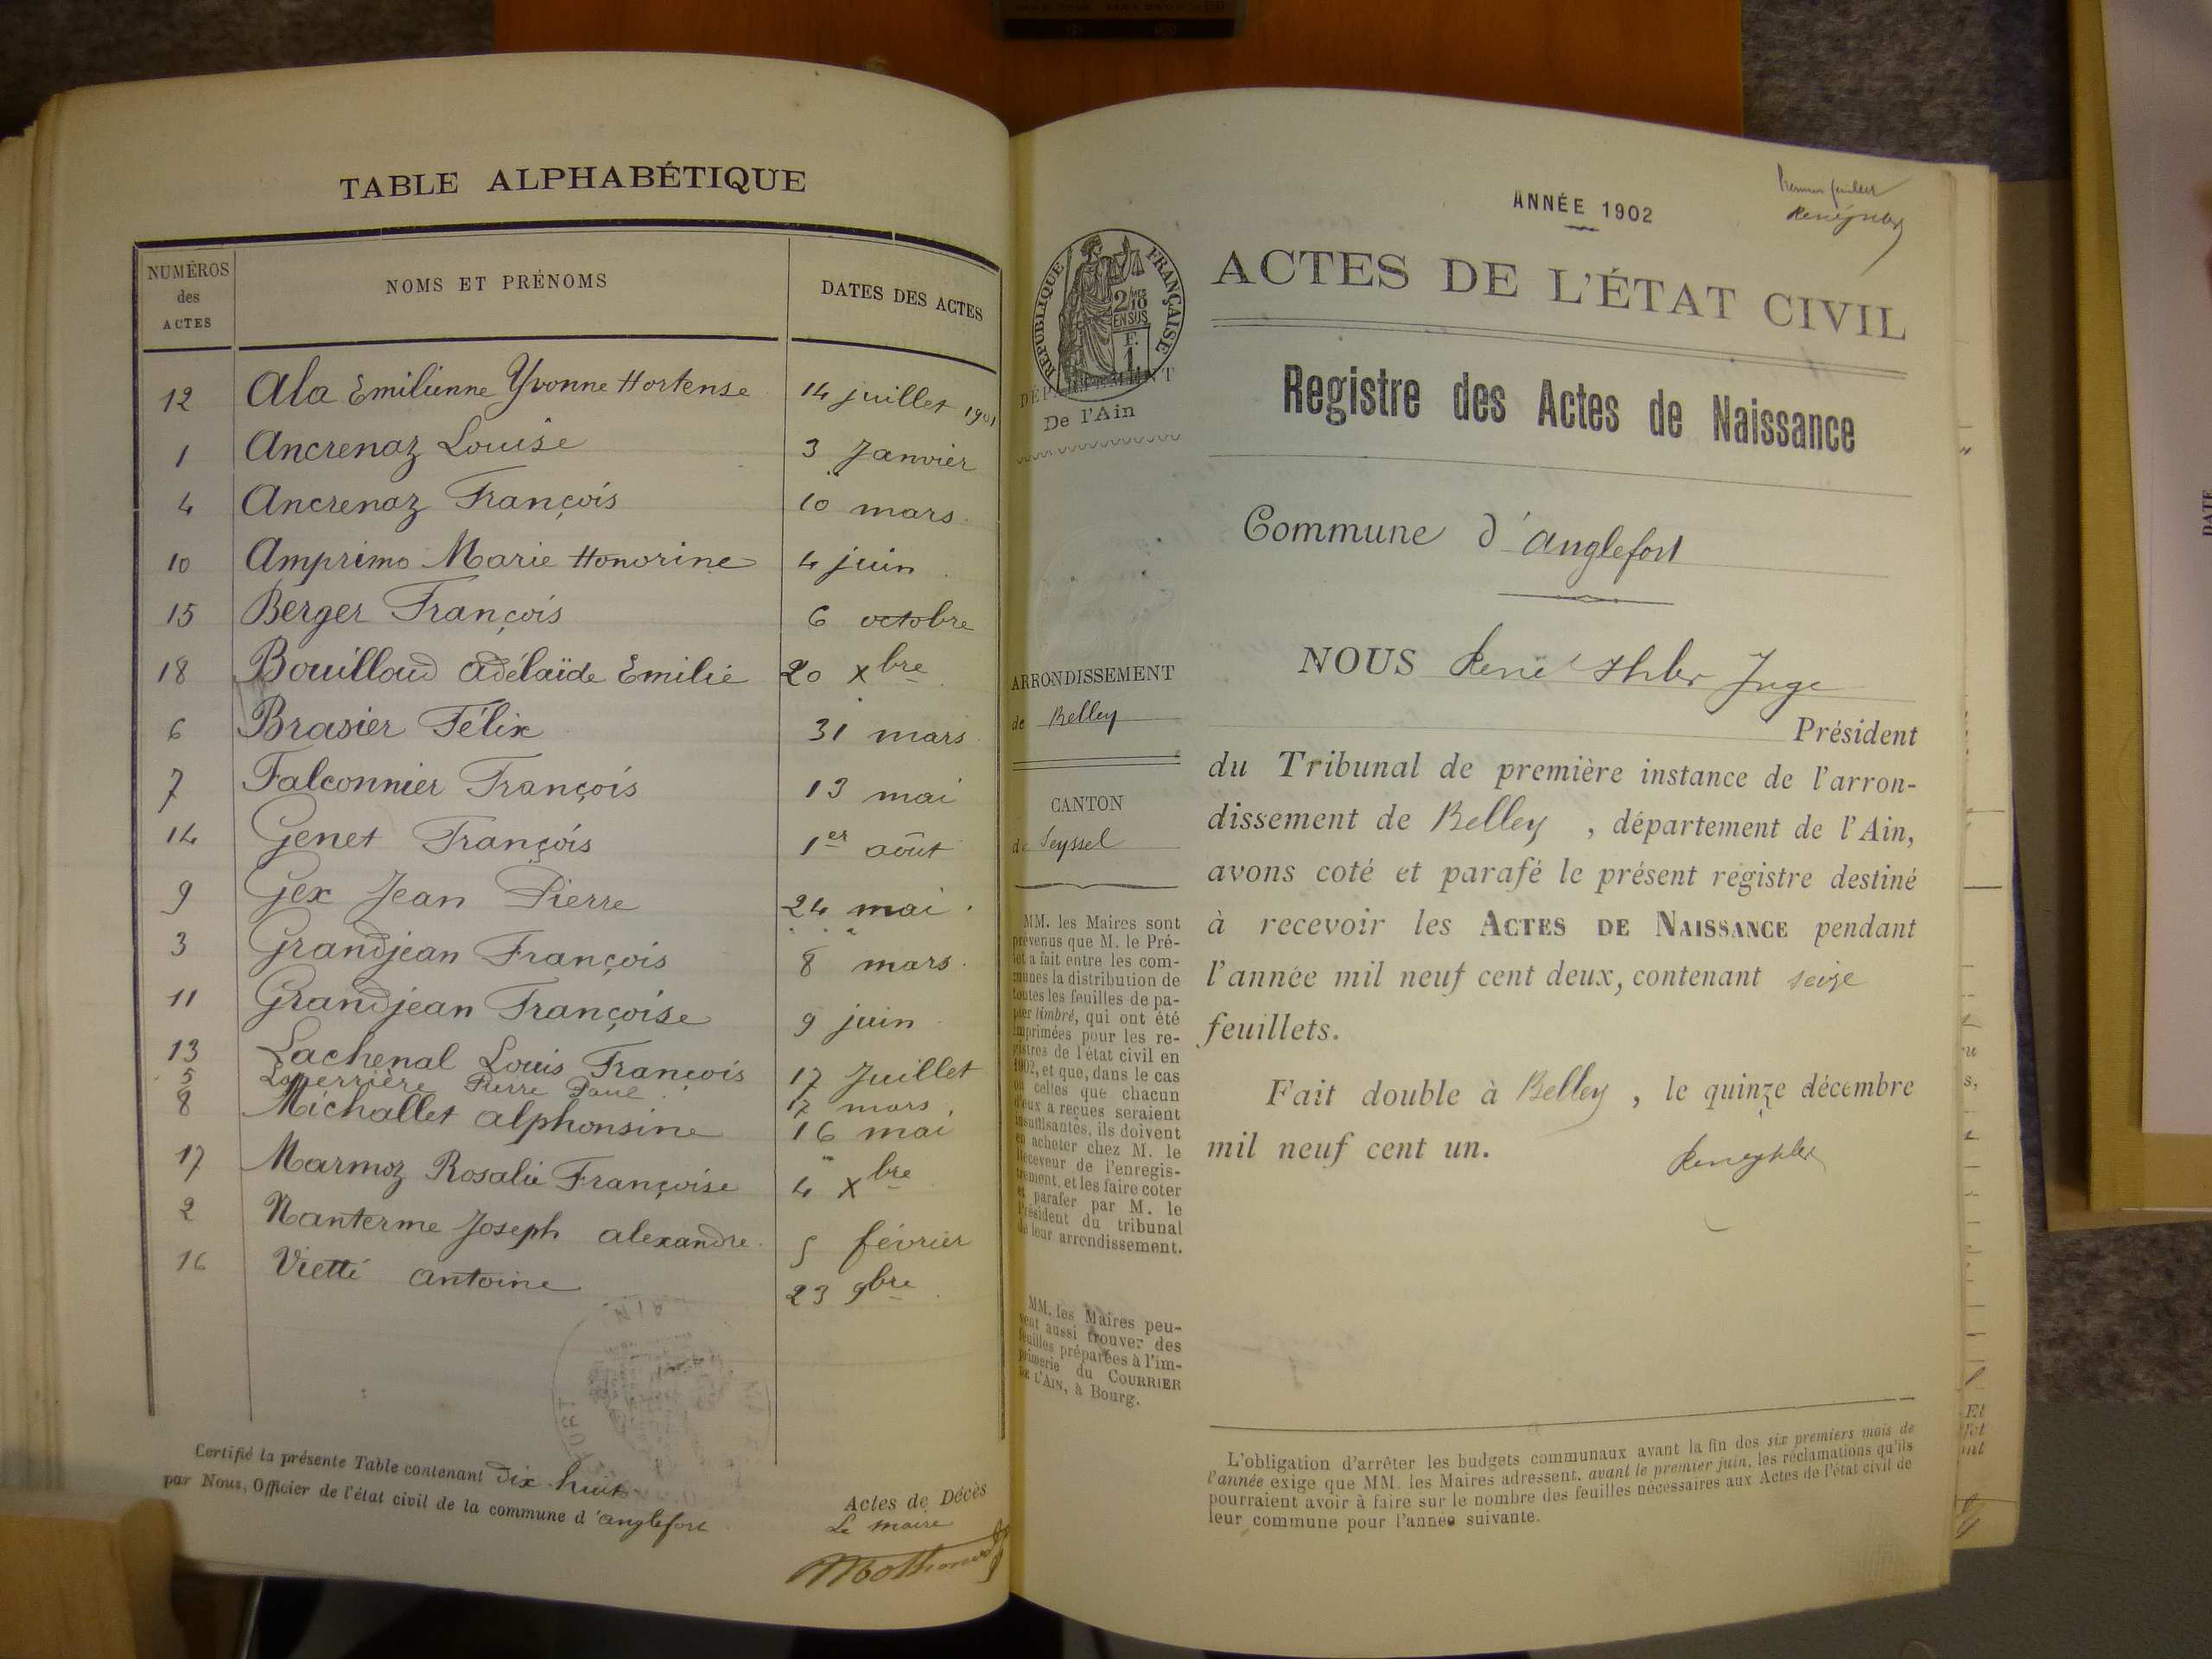 TABLE ALPHABÉTIQUE
NUMÉROS des ACTES
NOMS ET PRÉNOMS
DATES DES ACTES
12 Ala Emilienne Yvonne Hortense 14 juillet 1901
1 Ancrenaz Louise 3 Janvier
4 Ancrenaz François 10 mars
10 Amprimo Marie Honorine 4 juin
15 Berger François 6 octobre
18 Bouilloud Adélaïde Emilie 20 xbre
6 Brasier Félix 31 mars
7 Falconnier François 13 mai
14 Genet François 1er août
9 Gex Jean Pierre 24 mai
3 Grandjean François 8 mars
11 Grandjean Françoise 9 juin
13 Lachenal Louis François 17 Juillet
5 Laperrière Pierre Paul 17 mars
8 Michallet alphonsine 16 mai
17 Marmoz Rosalie Françoise 4 xbre
2 Nanterme Joseph alexandre 5 février
16 Vietti antoine 23 9bre
Certifié la présente Table contenant dix-huit Actes de Décès
par Nous, Officier de l'état civil de la commune d'anglefort
Le maire
ANNÉE 1902
Premier feuillet
ACTES DE L'ÉTAT CIVIL
RÉPUBLIQUE FRANÇAISE
2/10mes
EN SUS
F.
1
DÉPARTEMENT
De l'Ain
Registre des Actes de Naissance
Commune d'anglefort
ARRONDISSEMENT
de Belley
CANTON
de Seyssel
MM. les Maires sont
prévenus que M. le Pré-
fet a fait entre les com-
munes la distribution de
toutes les feuilles de pa-
pier timbré, qui ont été
imprimées pour les re-
gistres de l'état civil en
1902, et que, dans le cas
où celles que chacun
d'eux a reçues seraient
insuffisantes, ils doivent
en acheter chez M. le
Receveur de l'enregis-
trement, et les faire coter
et parafer par M. le
Président du tribunal
de leur arrondissement.
MM. les Maires peu-
vent aussi trouver des
feuilles préparées à l'im-
primerie du COURRIER
DE L'AIN, à Bourg.
NOUS Juge
Président
du Tribunal de première instance de l'arron-
dissement de Belley, département de l'Ain,
avons coté et parafé le présent registre destiné
à recevoir les ACTES DE NAISSANCE pendant
l'année mil neuf cent deux, contenant seize
feuillets.
Fait double à Belley, le quinze décembre
mil neuf cent un.
L'obligation d'arrêter les budgets communaux avant la fin des six premiers mois de
l'année exige que MM. les Maires adressent, avant le premier juin, les réclamations qu'ils
pourraient avoir à faire sur le nombre des feuilles nécessaires aux Actes de l'état civil de
leur commune pour l'année suivante.
DATE